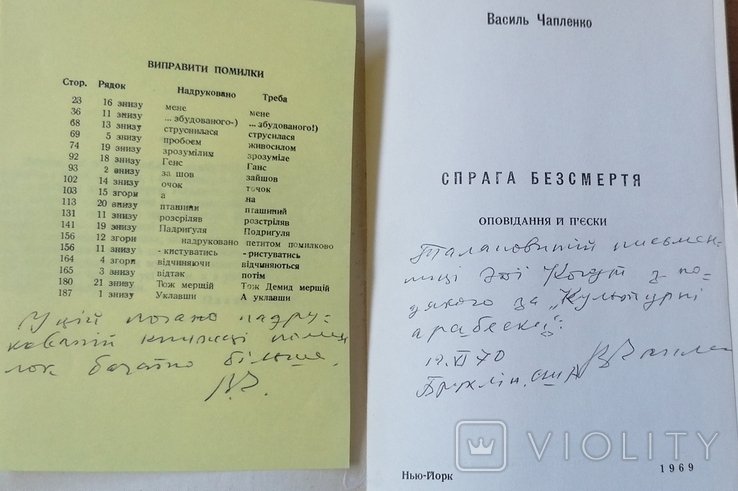 ВИПРАВИТИ ПОМИЛКИ
Стор. Рядок Надруковано Треба
23 16 знизу мене мене
36 11 знизу ... збудованого-) ... збудованого!)
68 13 знизу струснилася струсилася
69 5 знизу пробоєм живосилом
74 19 знизу зрозумілим зрозуміле
92 18 знизу Генс Ганс
93 2 знизу за шов зайшов
102 14 знизу очок точок
103 15 згори а на
113 20 знизу пташини пташиний
131 11 знизу розсріляв розстріляв
141 19 знизу Падриґуля Подриґуля
156 12 згори надруковано петитом помилково
156 11 знизу - кистуватись - ристуватись
164 4 згори відчиняючи відчиняються
165 3 знизу відтак потім
180 21 знизу Тож мерщій Тож Демид мерщій
187 1 знизу Уклавши А уклавши
У цій погано надру-
кованій книжці поми-
лок багато більше.
В.Ч.
Василь Чапленко
СПРАГА БЕЗСМЕРТЯ
ОПОВІДАННЯ Й П'ЄСКИ
Талановитій письмен-
ниці Еті Когут з по-
дякою за „Культурні
арабески".
12.VI 70 В. Чапле
Бруклін, США
Нью-Йорк 1969
VIOLITY